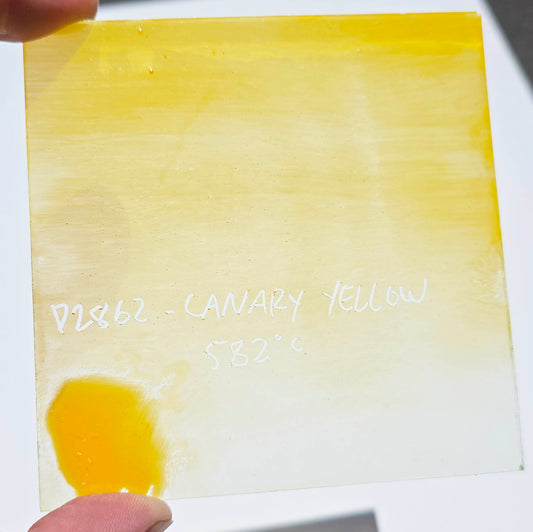 D2862 - CANARY YELLOW
582°C